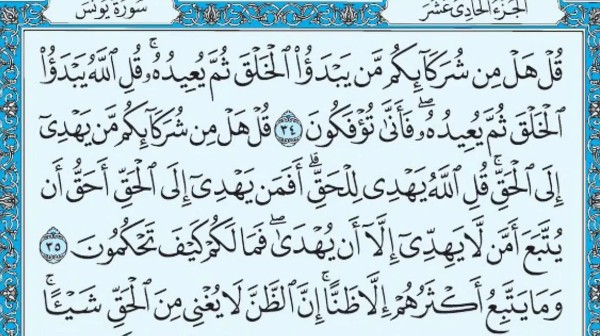 الجزء الحادي عشر
سورة يونس
قُلْ هَلْ مِن شُرَكَآئِكُم مَّن يَبْدَؤُا۟ الْخَلْقَ ثُمَّ يُعِيدُهُۥ ۚ قُلِ اللَّهُ يَبْدَؤُا۟
الْخَلْقَ ثُمَّ يُعِيدُهُۥ ۖ فَأَنَّىٰ تُؤْفَكُونَ ٣٤ قُلْ هَلْ مِن شُرَكَآئِكُم مَّن يَهْدِىٓ
إِلَى الْحَقِّ ۚ قُلِ اللَّهُ يَهْدِى لِلْحَقِّ ۗ أَفَمَن يَهْدِىٓ إِلَى الْحَقِّ أَحَقُّ أَن
يُتَّبَعَ أَمَّن لَّا يَهِدِّىٓ إِلَّآ أَن يُهْدَىٰ ۖ فَمَا لَكُمْ كَيْفَ تَحْكُمُونَ ٣٥
وَمَا يَتَّبِعُ أَكْثَرُهُمْ إِلَّا ظَنًّا ۚ إِنَّ الظَّنَّ لَا يُغْنِى مِنَ الْحَقِّ شَيْـًٔا ۚ